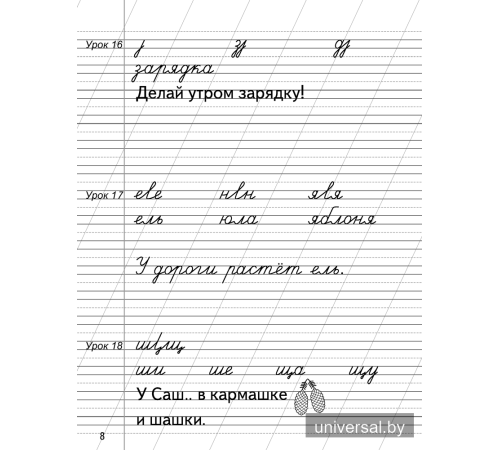 Урок 16 j зj дj
зарядка
Делай утром зарядку!
Урок 17 еве нвн явя
ель юла яблоня
У дороги растёт ель.
Урок 18
ши ше ща щу
У Саш.. в кармашке
и шашки.
8
universal.by